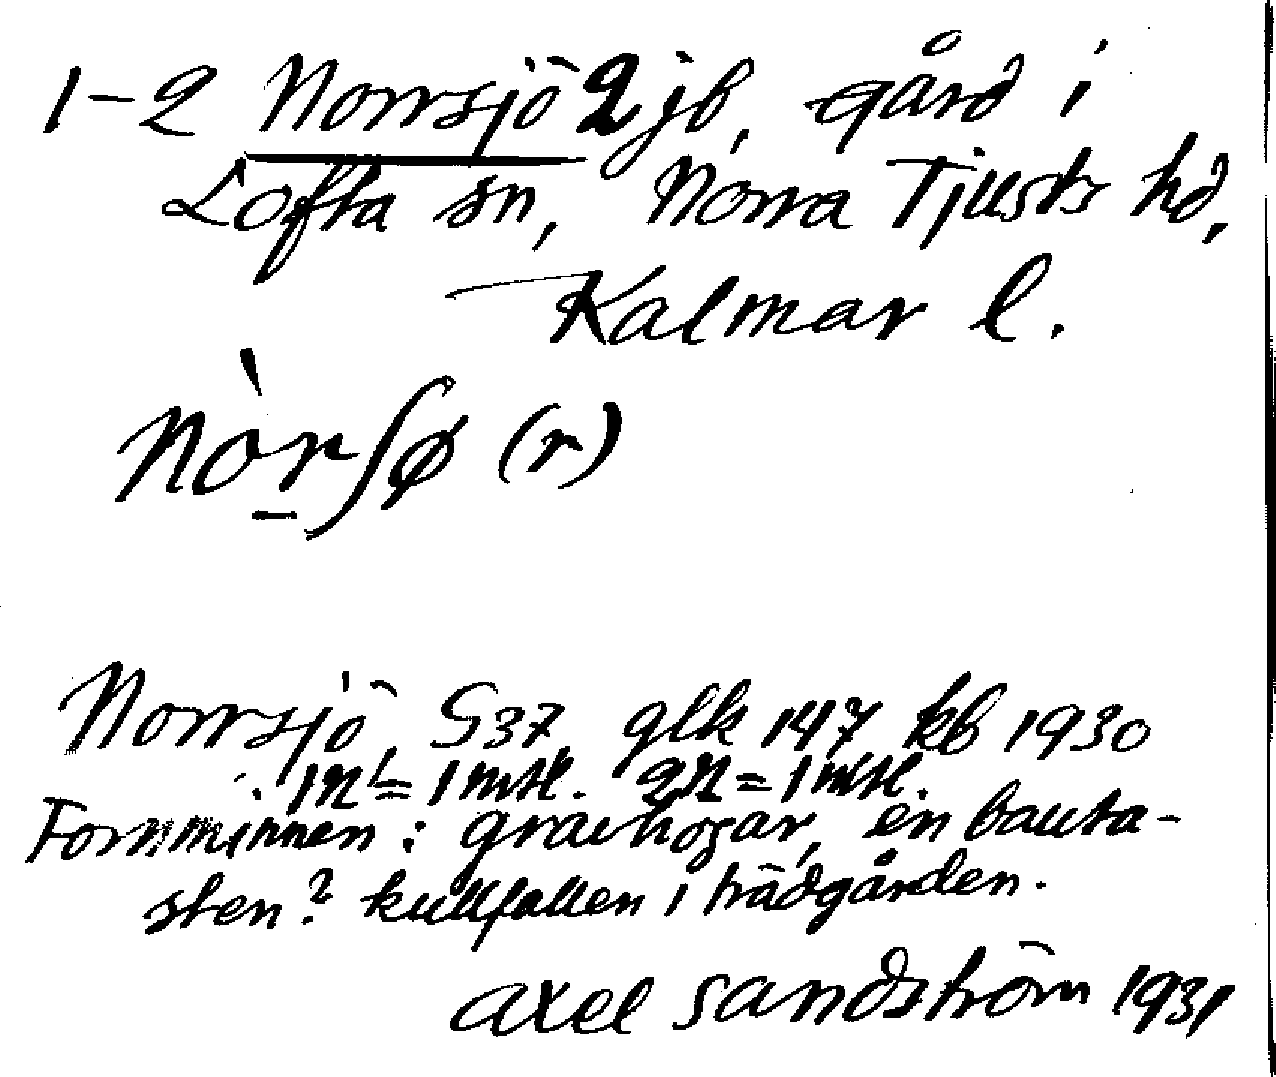 1-2 Norrsjö 2 jb, gård i
Lofta sn, Norra Tjusts hd,
Kalmar l.
nòrʃø (r)
Norrsjö, S37, glk 147 kb 1930
1n = 1 mtl. 2n = 1 mtl.
Fornminnen: gravhögar, en bauta-
sten? kullfallen i trädgården.
Axel Sandström 1931